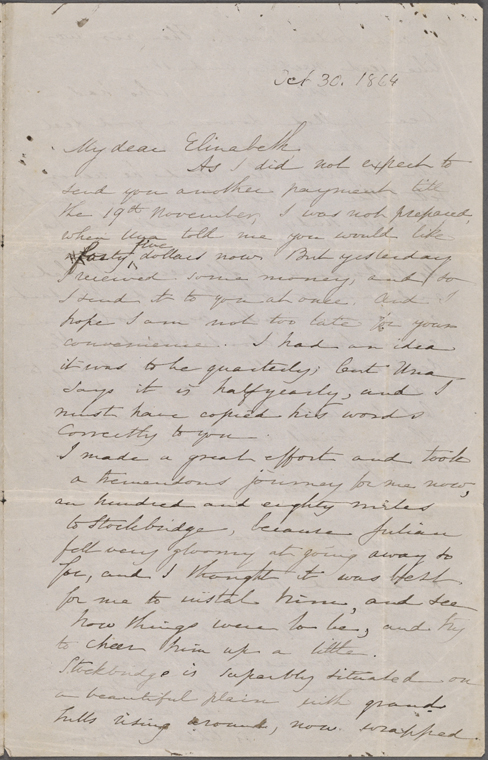 Oct 30. 1864
My dear Elizabeth
As I did not expect to
send you another payment till
the 19th November, I was not prepared,
when Una told me you would like
forty five dollars now. But yesterday
I received some money, and so
I send it to you at once. And I
hope I am not too late for your
convenience. I had an idea
it was to be quarterly; but Una
says it is half yearly, and I
must have copied his words
correctly to you.
I made a great effort and took
a tremendous journey for me now,
an hundred and eighty miles
to Stockbridge, because Julian
felt very gloomy at going away so
far, and I thought it was best
for me to instal him, and see
how things were to be, and try
to cheer him up a little.
Stockbridge is superbly situated on
a beautiful plain with grand
hills rising around, now wrapped